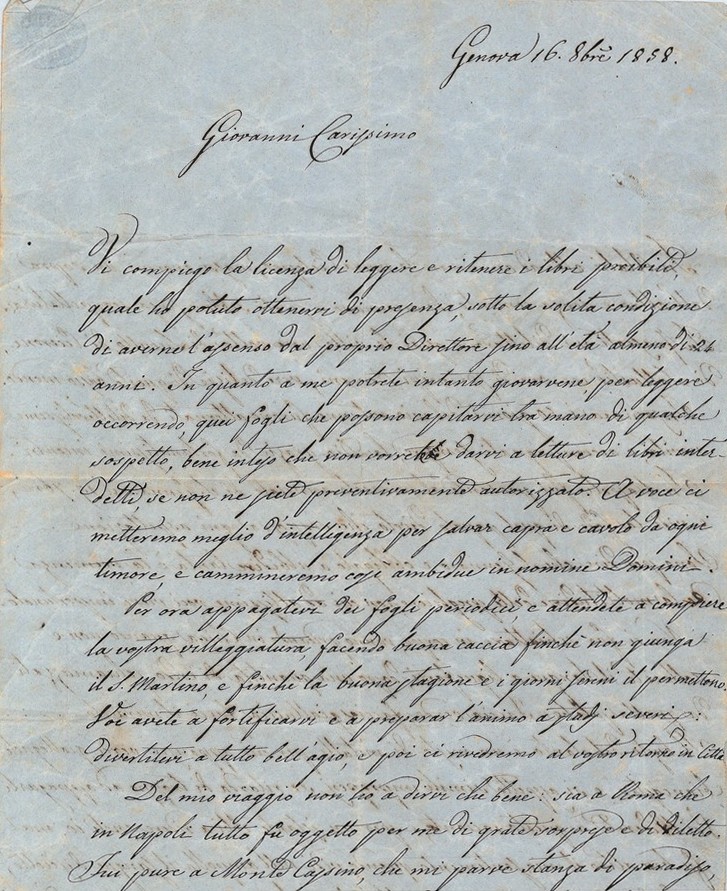 Genova 16. 8bre 1858.
Giovanni Carissimo
Vi compiego la licenza di leggere e ritenere i libri proibiti,
quale ho potuto ottenervi di presenza, sotto la solita condizione
di averne l'assenso dal proprio Direttore fino all'età almeno di 24
anni. In quanto a me potrete intanto giovarvene per leggere
occorrendo, quei fogli che possono capitarvi tra mano di qualche
sospetto, bene inteso che non vorrete darvi a letture di libri inter-
detti, se non ne siete preventivamente autorizzato. A voce ci
metteremo meglio d'intelligenza per salvar capra e cavolo da ogni
timore, e cammineremo così ambidue in nomine Domini.
Per ora appagatevi dei fogli periodici, e attendete a compiere
la vostra villeggiatura, facendo buona caccia finchè non giunga
il S. Martino, e finchè la buona stagione e i giorni sereni il permettono.
Voi avete a fortificarvi e a preparar l'animo a studj severi:
divertitevi a tutto bell'agio, e poi ci rivedremo al vostro ritorno in Città.
Del mio viaggio non ho a dirvi che bene: sia a Roma che
in Napoli tutto fu oggetto per me di grate sorprese e di diletto.
Fui pure a Monte Cassino, che mi parve stanza di paradiso,